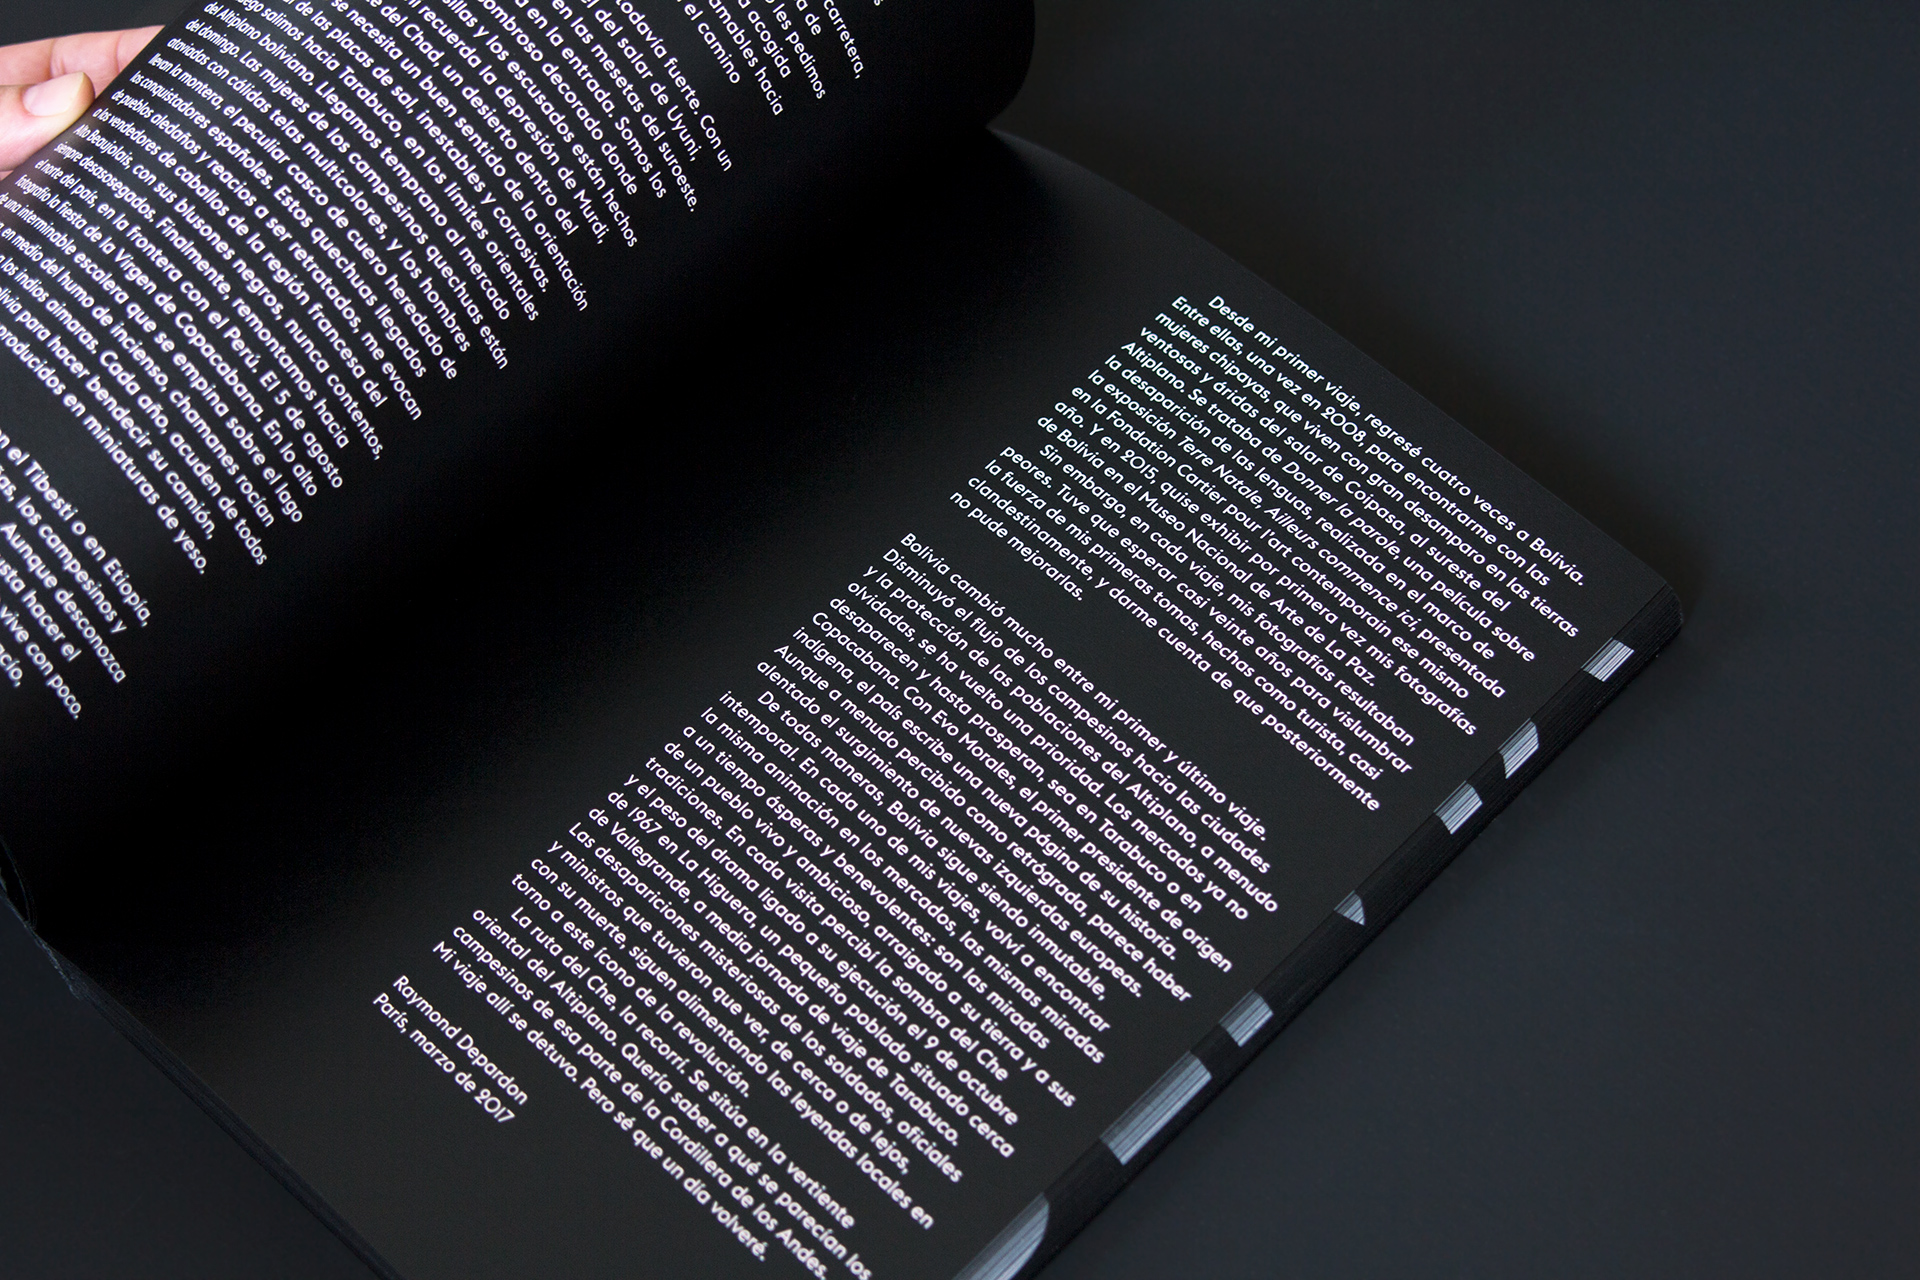 carretera,
de
les pedimos
acogida
amables hacia
el camino
todavía fuerte. Con un
del salar de Uyuni,
en las mesetas del suroeste.
en la entrada. Somos los
decorado donde
y los escusados están hechos
recuerda la depresión de Murdi,
del Chad, un desierto dentro del
se necesita un buen sentido de la orientación
de las placas de sal, inestables y corrosivas.
salimos hacia Tarabuco, en los límites orientales
del Altiplano boliviano. Llegamos temprano al mercado
del domingo. Las mujeres de los campesinos quechuas están
ataviadas con cálidas telas multicolores, y los hombres
llevan la montera, el peculiar casco de cuero heredado de
los conquistadores españoles. Estos quechuas llegados
de pueblos aledaños y reacios a ser retratados, me evocan
a los vendedores de caballos de la región francesa del
Alto Beaujolais, con sus blusones negros, nunca contentos,
siempre desasosegados. Finalmente, remontamos hacia
el norte del país, en la frontera con el Perú. El 5 de agosto
fotografío la fiesta de la Virgen de Copacabana. En lo alto
de una interminable escalera que se empina sobre el lago
en medio del humo de incienso, chamanes rocían
a los indios aimaras. Cada año, acuden de todos
para hacer bendecir su camión,
en miniaturas de yeso.
el Tibesti o en Etiopía,
los campesinos y
Aunque desconozca
hacer el
vive con poco.
Desde mi primer viaje, regresé cuatro veces a Bolivia.
Entre ellas, una vez en 2008, para encontrarme con las
mujeres chipayas, que viven con gran desamparo en las tierras
ventosas y áridas del salar de Coipasa, al sureste del
Altiplano. Se trataba de Donner la parole, una película sobre
la desaparición de las lenguas, realizada en el marco de
la exposición Terre Natale, Ailleurs commence ici, presentada
en la Fondation Cartier pour l'art contemporain ese mismo
año. Y en 2015, quise exhibir por primera vez mis fotografías
de Bolivia en el Museo Nacional de Arte de La Paz.
Sin embargo, en cada viaje, mis fotografías resultaban
peores. Tuve que esperar casi veinte años para vislumbrar
la fuerza de mis primeras tomas, hechas como turista, casi
clandestinamente, y darme cuenta de que posteriormente
no pude mejorarlas.
Bolivia cambió mucho entre mi primer y último viaje.
Disminuyó el flujo de los campesinos hacia las ciudades
y la protección de las poblaciones del Altiplano, a menudo
olvidadas, se ha vuelto una prioridad. Los mercados ya no
desaparecen y hasta prosperan, sea en Tarabuco o en
Copacabana. Con Evo Morales, el primer presidente de origen
indígena, el país escribe una nueva página de su historia.
Aunque a menudo percibido como retrógrada, parece haber
alentado el surgimiento de nuevas izquierdas europeas.
De todas maneras, Bolivia sigue siendo inmutable,
intemporal. En cada uno de mis viajes, volví a encontrar
la misma animación en los mercados, las mismas miradas
a un tiempo ásperas y benevolentes: son las miradas
de un pueblo vivo y ambicioso, arraigado a su tierra y a sus
tradiciones. En cada visita percibí la sombra del Che
y el peso del drama ligado a su ejecución el 9 de octubre
de 1967 en La Higuera, un pequeño poblado situado cerca
de Vallegrande, a media jornada de viaje de Tarabuco.
Las desapariciones misteriosas de los soldados, oficiales
y ministros que tuvieron que ver, de cerca o de lejos,
con su muerte, siguen alimentando las leyendas locales en
torno a este ícono de la revolución.
La ruta del Che, la recorrí. Se sitúa en la vertiente
oriental del Altiplano. Quería saber a qué se parecían los
campesinos de esa parte de la Cordillera de los Andes.
Mi viaje allí se detuvo. Pero sé que un día volveré.
Raymond Depardon
París, marzo de 2017